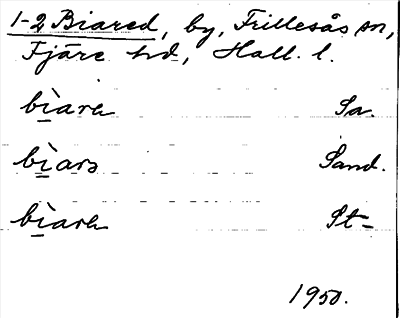 1-2 Biared, by, Frillesås sn,
Fjäre hd, Hall. l.
bìara Sa.
bìarə Sand.
bìara St-
1950.